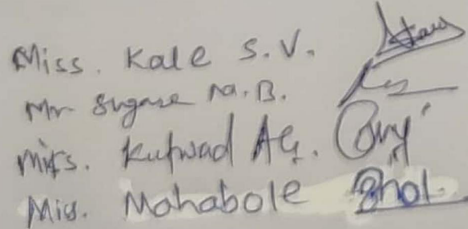 Miss. Kale S.V.
Mr Sugare M.B.
Mrs. Kutwad AG.
Mis. Mahabole Bhol.